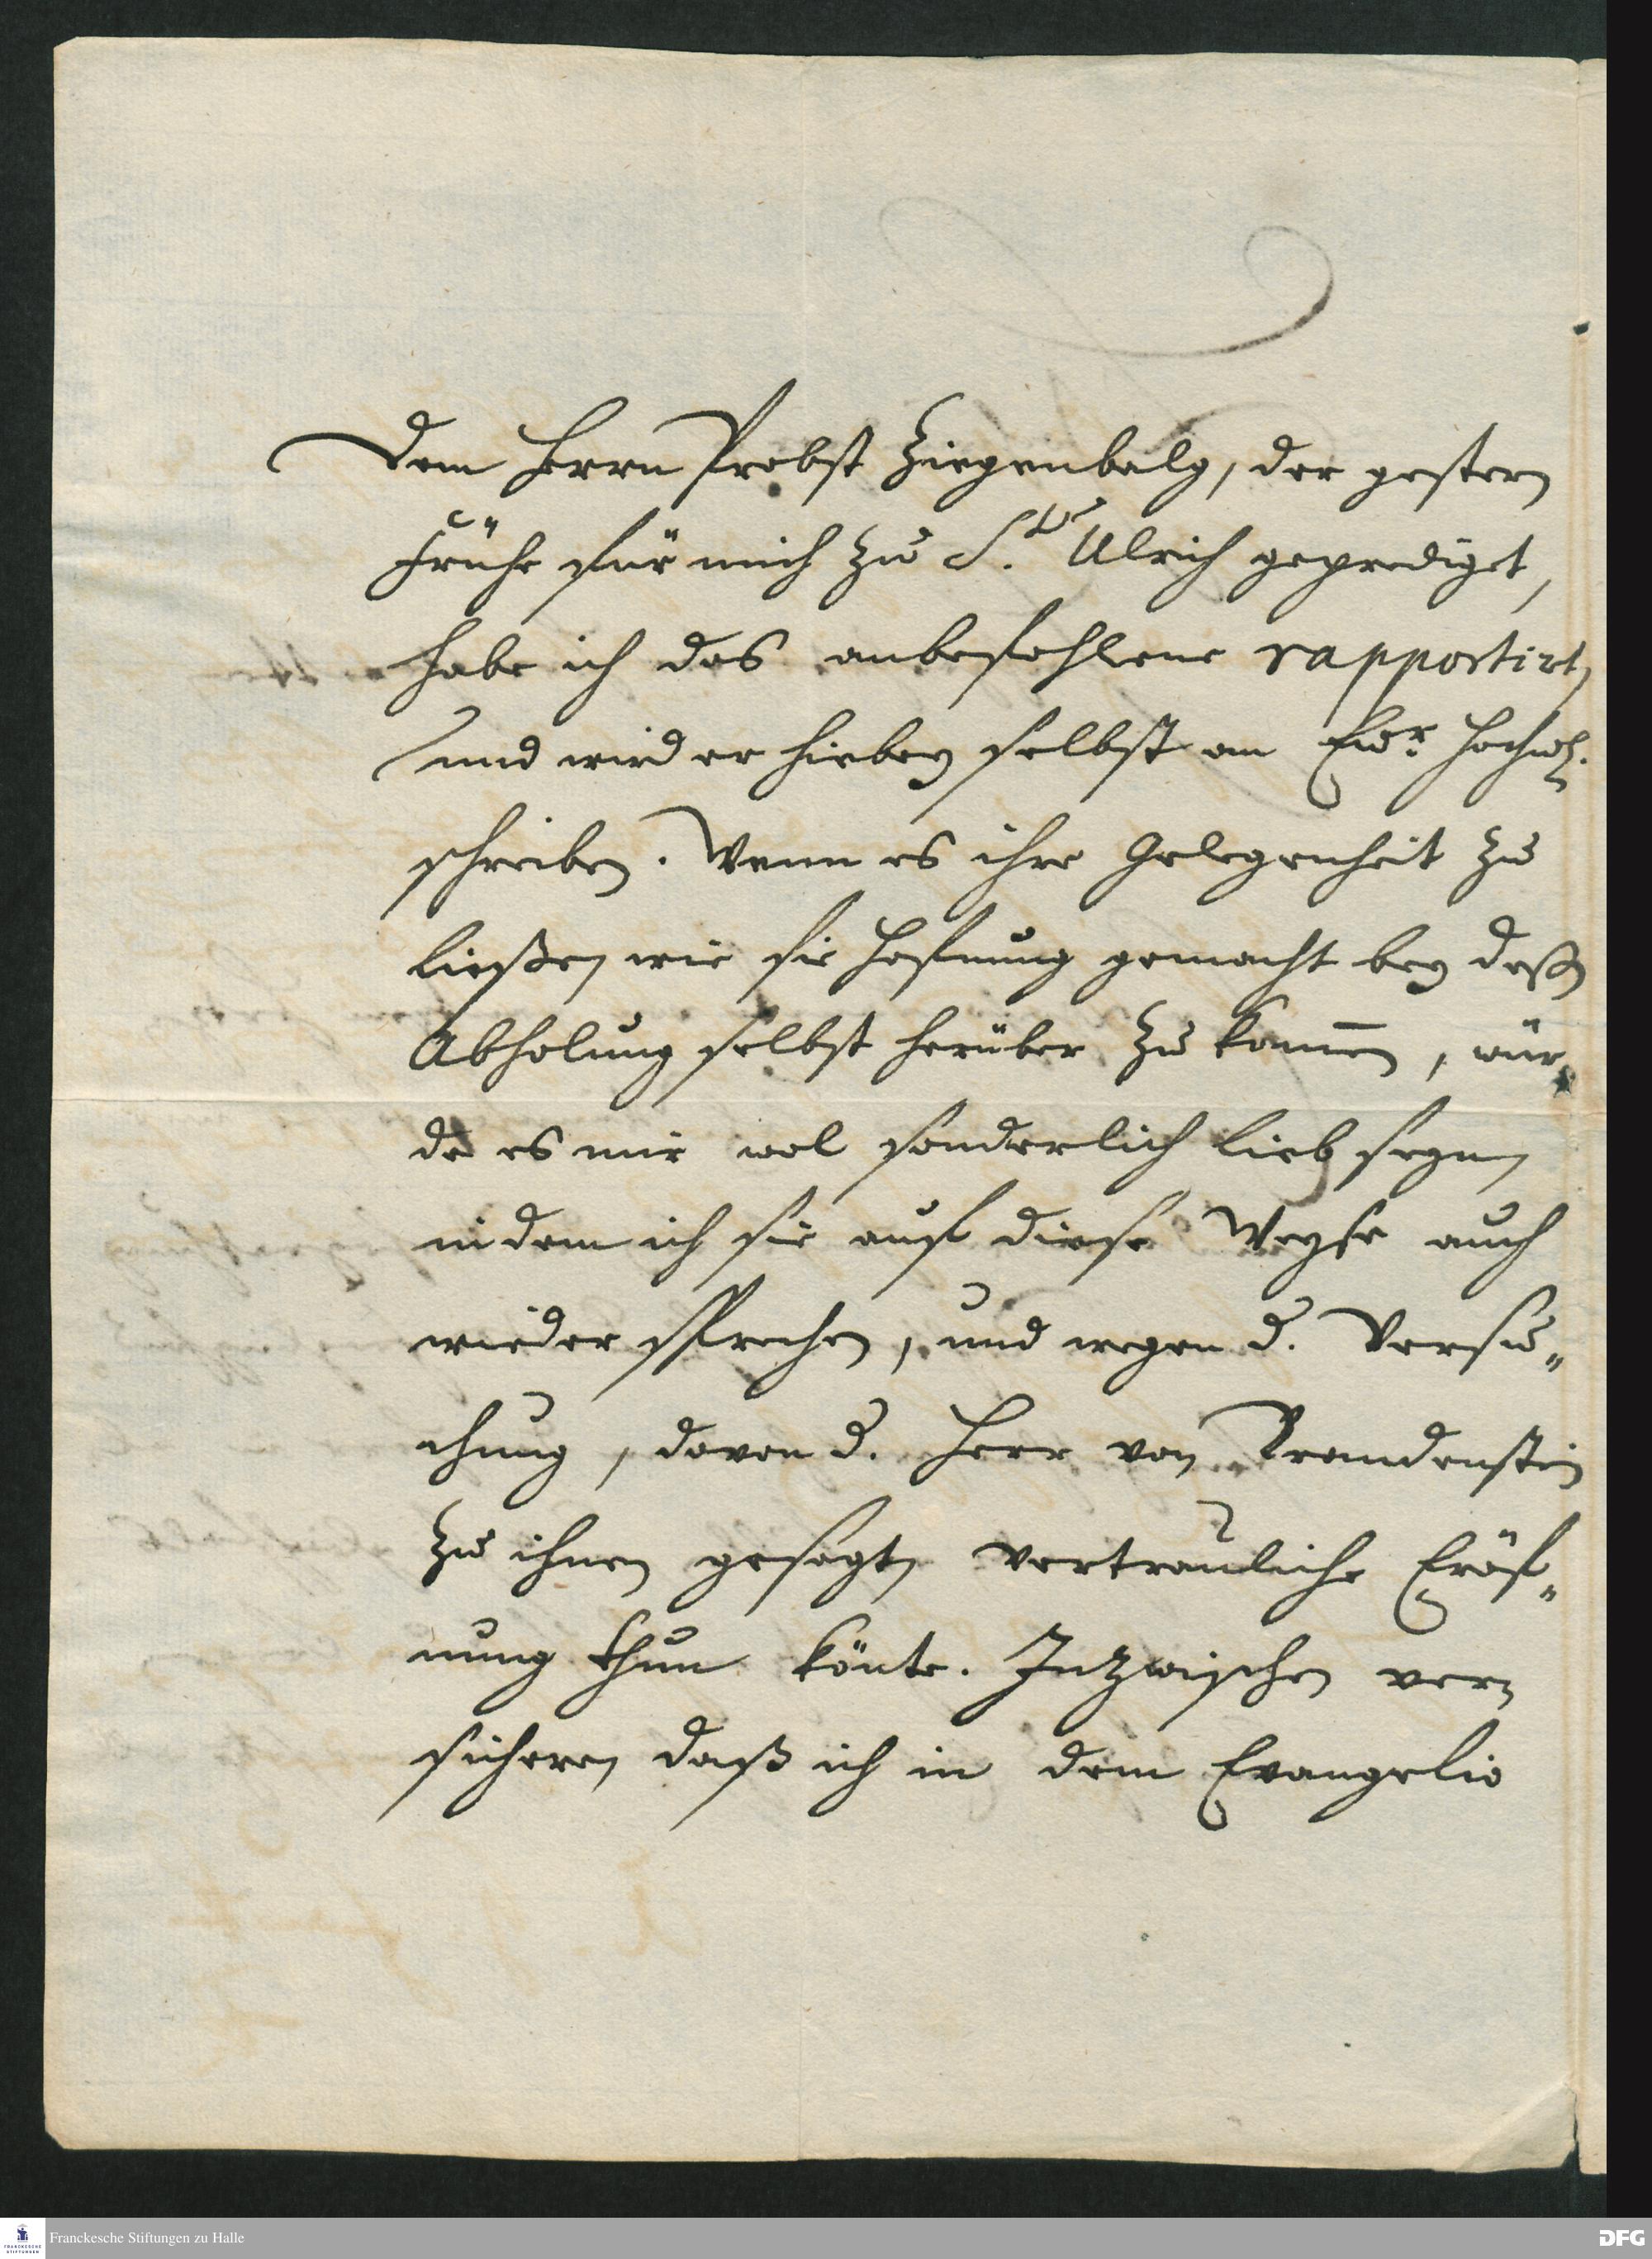 Dem Herrn Probst Ziegenbalg, der gestern
Frühe für mich zu St. Ulrich geprediget,
habe ich das anbefohlene rapportirt,
und wird er hiebey selbst an Ewr. Hochw.
schreiben. Wenn es ihre Gelegenheit zu
ließen wie sie Hofnung gemacht bey deßen
Abholung selbst herüber zu kom̄en, wür
de es mir wol sonderlich lieb seyn
in dem ich sie auf diese Weyse auch
wieder sprechen, und wegen d. Versu„
chung, davon d. Herr von Brandenstein
zu ihnen gesagt, vertrauliche Eröf„
nung thun könte. Inzwischen ver
sichere, daß ich in dem Evangelio
Franckesche Stiftungen zu Halle
FRANCKESCHE STIFTUNGEN
DFG